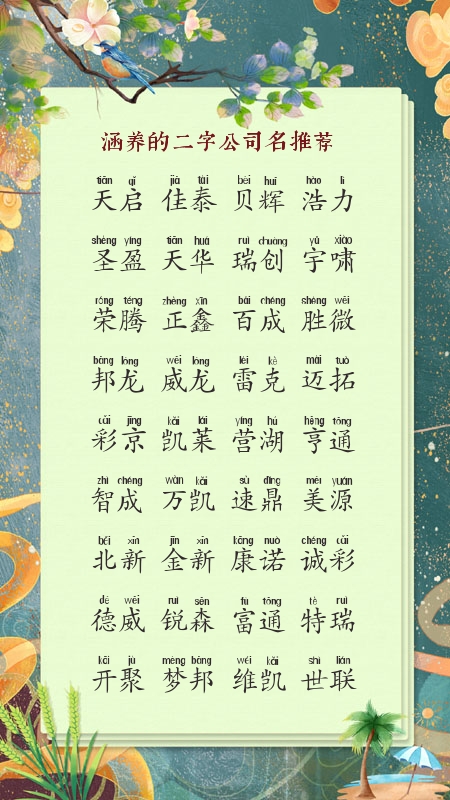 涵养的二字公司名推荐
tiān qǐ jiā tài bèi huī hào lì
天启 佳泰 贝辉 浩力
shèng yíng tiān huá ruì chuàng yǔ xiào
圣盈 天华 瑞创 宇啸
róng téng zhèng xīn bǎi chéng shèng wēi
荣腾 正鑫 百成 胜微
bāng lóng wēi lóng léi kè mài tuò
邦龙 威龙 雷克 迈拓
cǎi jīng kǎi lái yíng hú hēng tōng
彩京 凯莱 营湖 亨通
zhì chéng wàn kǎi sù dǐng měi yuán
智成 万凯 速鼎 美源
běi xīn jīn xīn kāng nuò chéng cǎi
北新 金新 康诺 诚彩
dé wēi ruì sēn fù tōng tè ruì
德威 锐森 富通 特瑞
kāi jù mèng bāng wéi kǎi shì lián
开聚 梦邦 维凯 世联